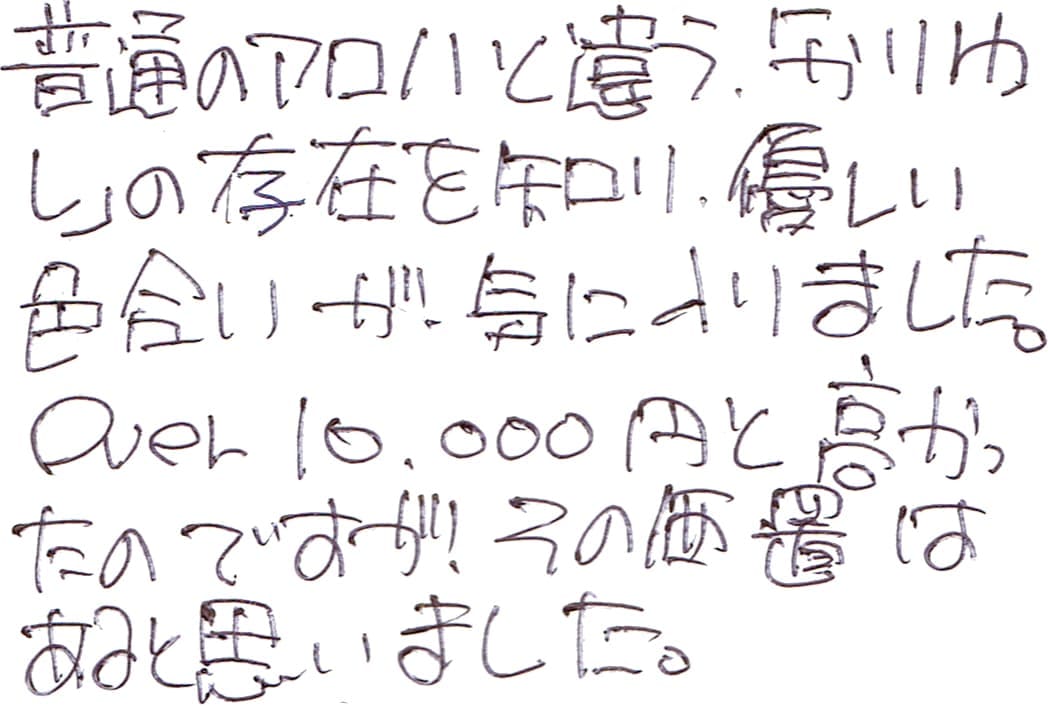 普通のアロハと違う、「かりゆ
し」の存在を知り、優しい
色合いが、気に入いりました。
Over 10.000円と高かっ
たのですが! その価置は
あると思いました。